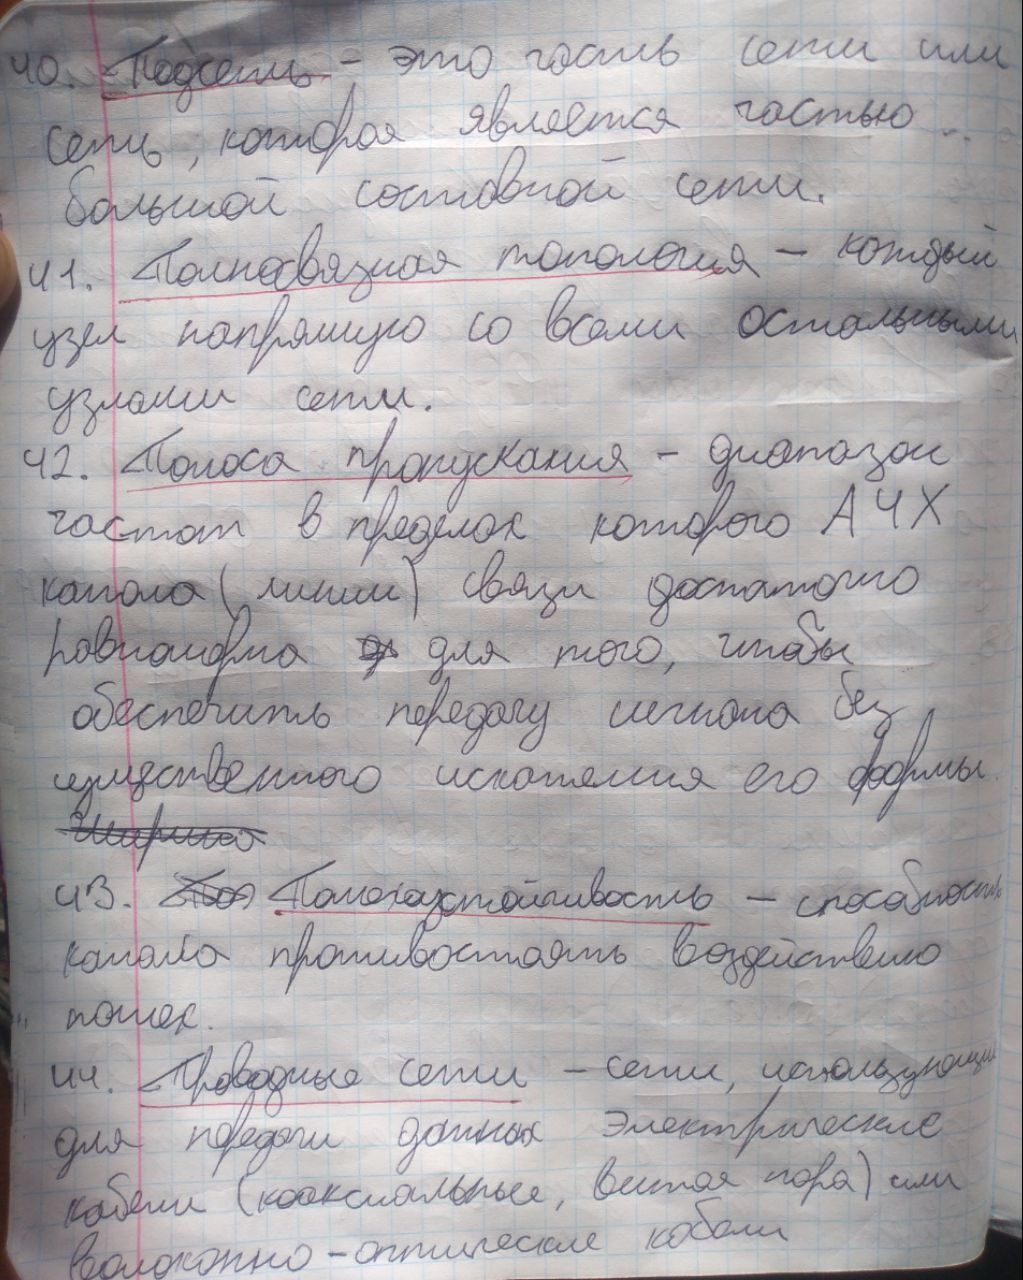 40. Подсеть - это часть сети или
сеть, которая является частью
большой составной сети.
41. Полносвязная топология - каждый
узел напрямую со всеми остальными
узлами сети.
42. Полоса пропускания - диапазон
частот в пределах которого АЧХ
канала (линии) связи достаточно
равномерна для того, чтобы
обеспечить передачу сигнала без
существенного искажения его формы.
Ширина
43. Помехоустойчивость - способность
канала противостоять воздействию
помех.
44. Проводные сети - сети, использующие
для передачи данных электрические
кабели (коаксиальные, витая пара) или
волоконно-оптические кабели